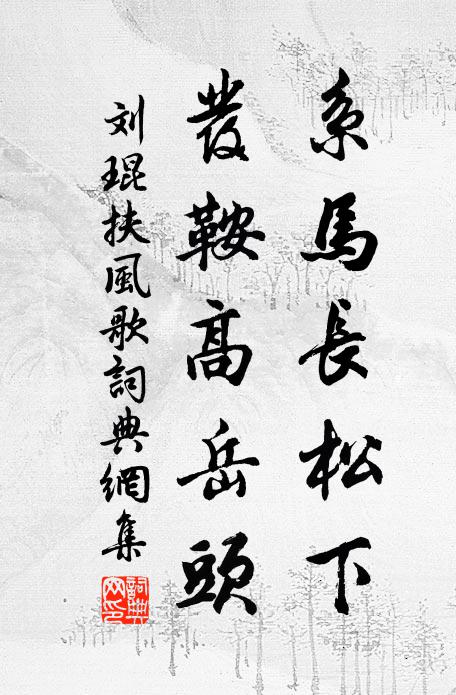 系馬長松下
發鞍高岳頭
刘琨扶風歌詞典網集